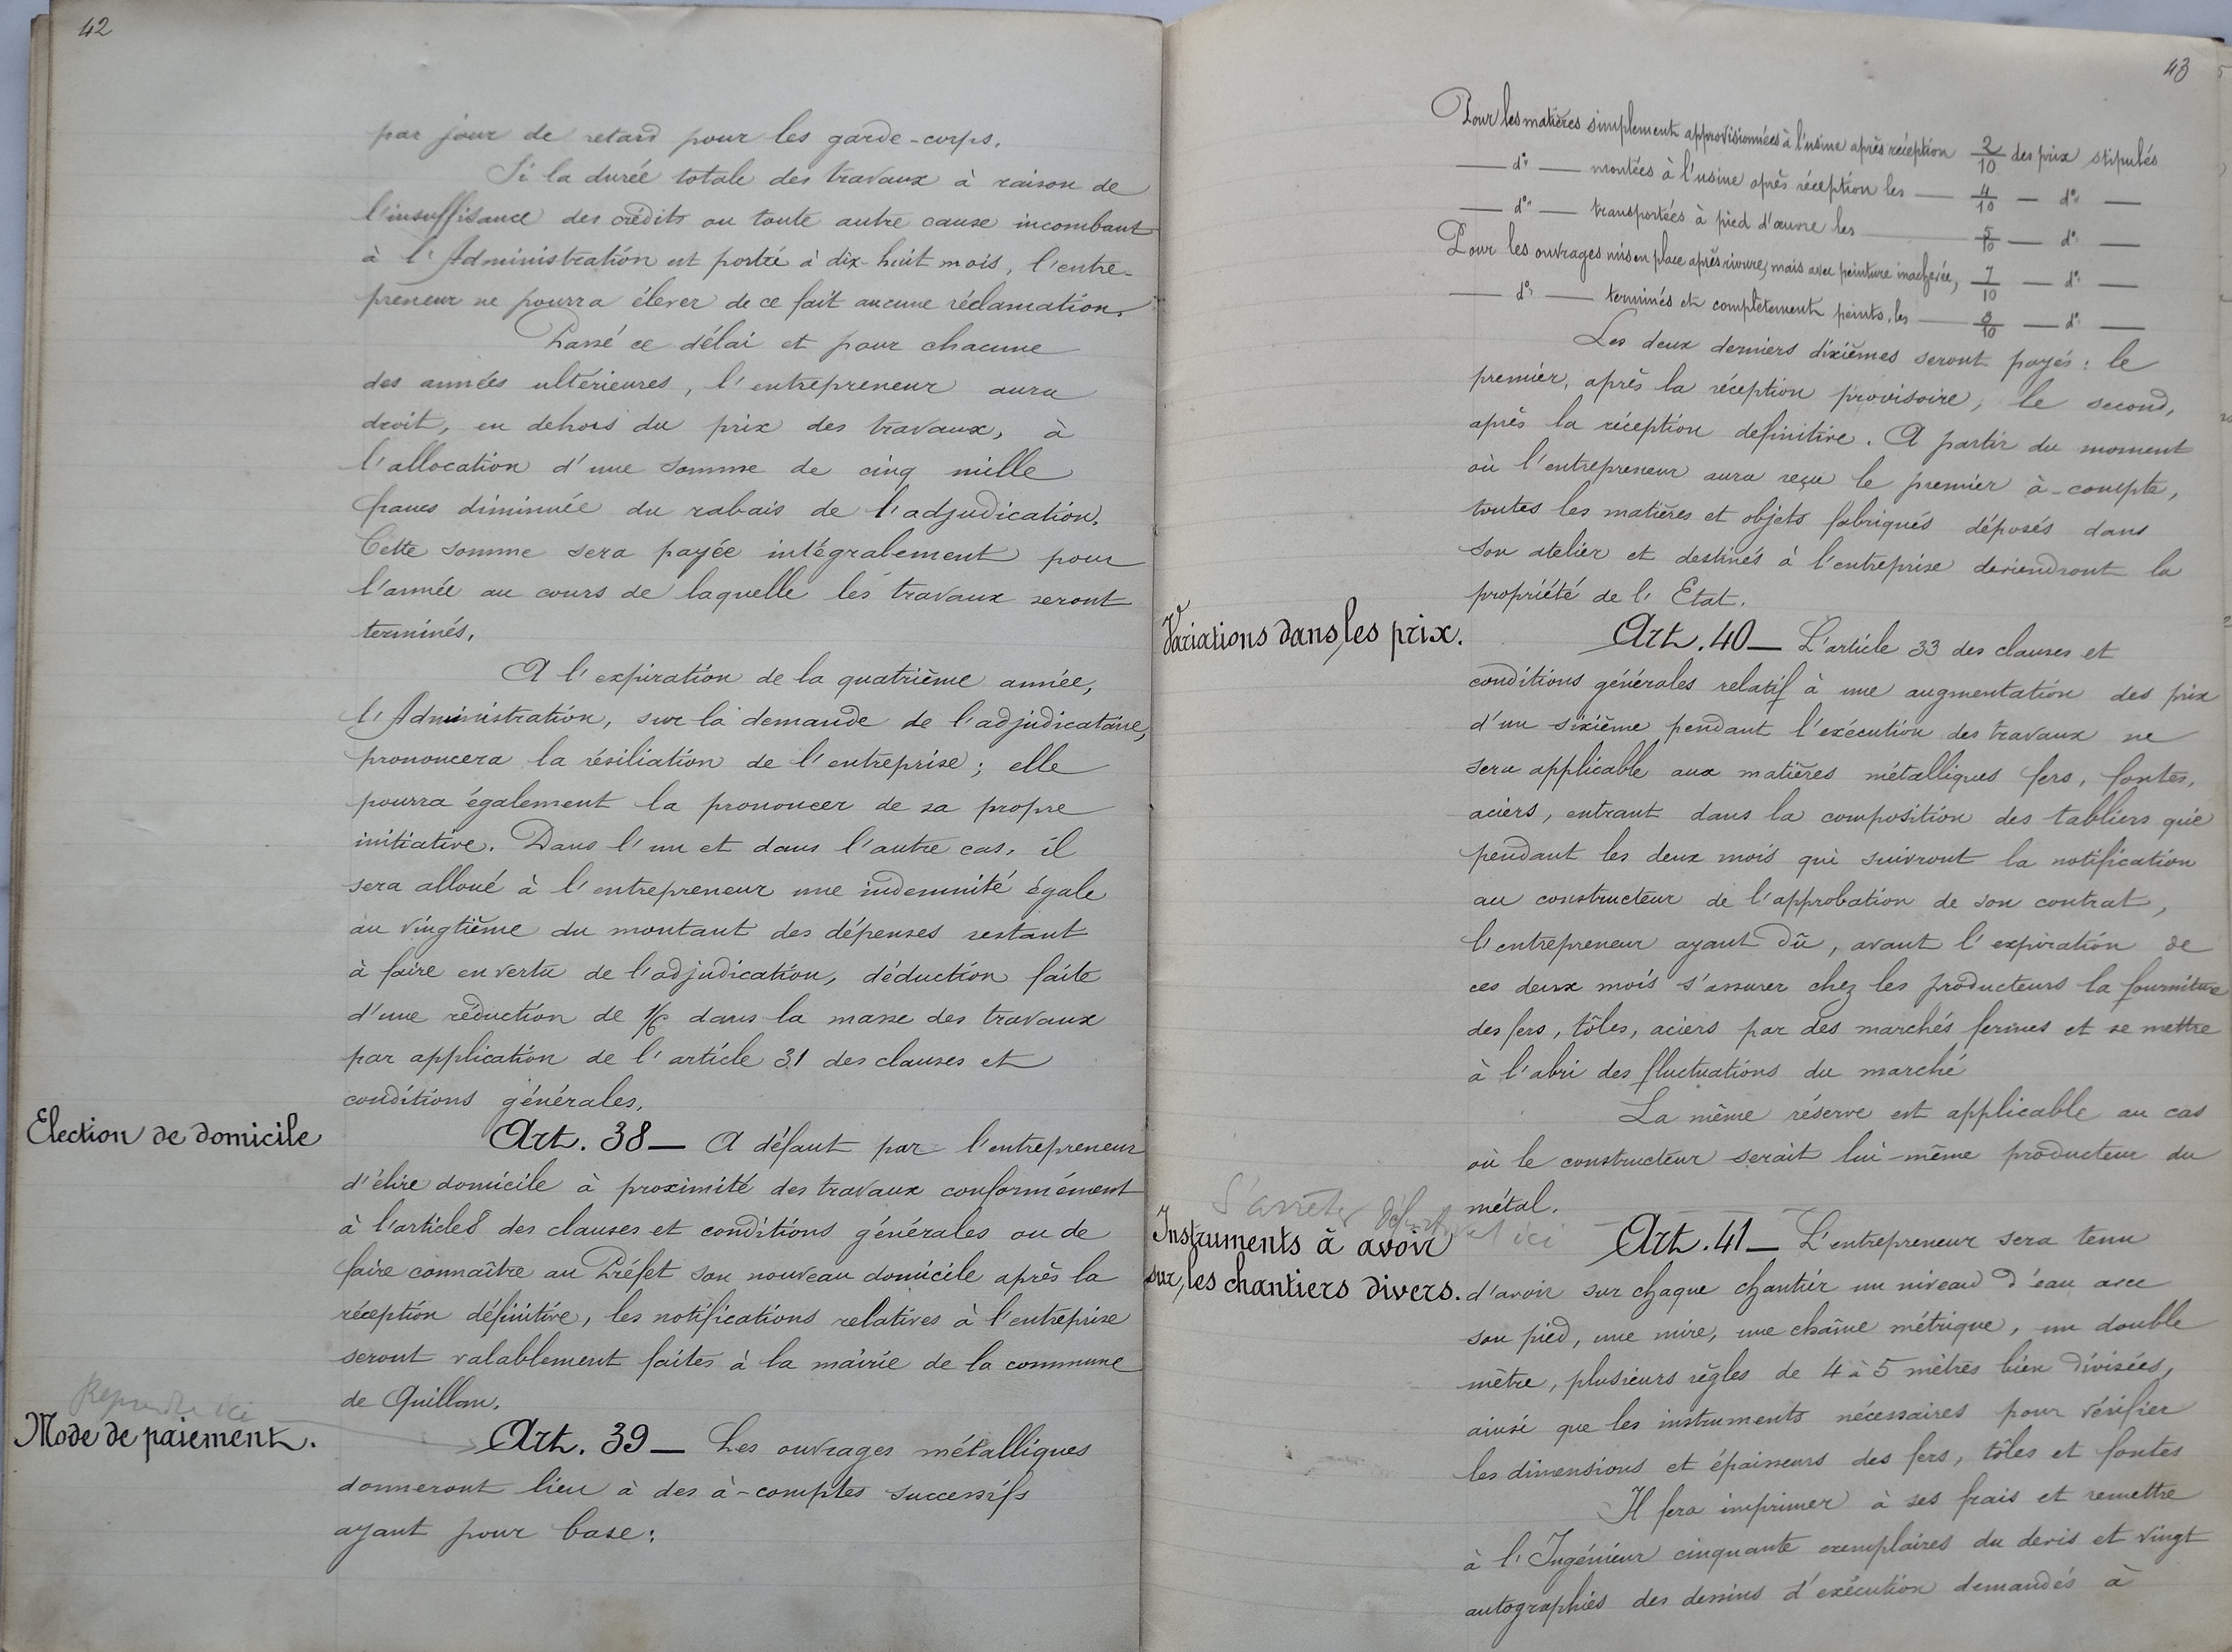 42
par jour de retard pour les garde-corps.
Si la durée totale des travaux à raison de
l'insuffisance des crédits ou toute autre cause incombant
à l'Administration est portée à dix-huit mois, l'entre-
preneur ne pourra élever de ce fait aucune réclamation.
Passé ce délai et pour chacune
des années ultérieures, l'entrepreneur aura
droit, en dehors du prix des travaux, à
l'allocation d'une somme de cinq mille
francs diminuée du rabais de l'adjudication.
Cette somme sera payée intégralement pour
l'année au cours de laquelle les travaux seront
terminés.
A l'expiration de la quatrième année,
l'Administration, sur la demande de l'adjudicataire,
prononcera la résiliation de l'entreprise; elle
pourra également la prononcer de sa propre
initiative. Dans l'un et dans l'autre cas, il
sera alloué à l'entrepreneur une indemnité égale
au vingtième du montant des dépenses restant
à faire en vertu de l'adjudication, déduction faite
d'une réduction de 1/6 dans la masse des travaux
par application de l'article 31 des clauses et
conditions générales.
Election de domicile
Art. 38 — A défaut par l'entrepreneur
d'élire domicile à proximité des travaux conformément
à l'article 8 des clauses et conditions générales ou de
faire connaître au Préfet son nouveau domicile après la
réception définitive, les notifications relatives à l'entreprise
seront valablement faites à la mairie de la commune
de Quillan.
Reprendre ici
Mode de paiement.
Art. 39 — Les ouvrages métalliques
donneront lieu à des à-comptes successifs
ayant pour base:
43
Pour les matières simplement approvisionnées à l'usine après réception 2/10 des prix stipulés
— d° — montées à l'usine après réception les — 4/10 — d° —
— d° — transportées à pied d'œuvre les — 5/10 — d° —
Pour les ouvrages mis en place après rivure, mais avec peinture inachevée, 7/10 — d° —
— d° — terminés et complètement peints, les — 8/10 — d° —
Les deux derniers dixièmes seront payés: le
premier, après la réception provisoire, le second,
après la réception definitive. A partir du moment
où l'entrepreneur aura reçu le premier à-compte,
toutes les matières et objets fabriqués déposés dans
son atelier et destinés à l'entreprise deviendront la
propriété de l'Etat.
Variations dans les prix.
Art. 40 — L'article 33 des clauses et
conditions générales relatif à une augmentation des prix
d'un sixième pendant l'exécution des travaux ne
sera applicable aux matières métalliques fers, fontes,
aciers, entrant dans la composition des tabliers que
pendant les deux mois qui suivront la notification
au constructeur de l'approbation de son contrat,
l'entrepreneur ayant dû, avant l'expiration de
ces deux mois s'assurer chez les producteurs la fourniture
des fers, tôles, aciers par des marchés fermes et se mettre
à l'abri des fluctuations du marché
La même réserve est applicable au cas
où le constructeur serait lui-même producteur du
métal.
S'arrêter ici
Instruments à avoir
sur les chantiers divers.
Art. 41 — L'entrepreneur sera tenu
d'avoir sur chaque chantier un niveau d'eau avec
son pied, une mire, une chaîne métrique, un double
mètre, plusieurs règles de 4 à 5 mètres bien divisées,
ainsi que les instruments nécessaires pour vérifier
les dimensions et épaisseurs des fers, tôles et fontes
Il fera imprimer à ses frais et remettre
à l'Ingénieur cinquante exemplaires du devis et vingt
autographiés des dessins d'exécution demandés à